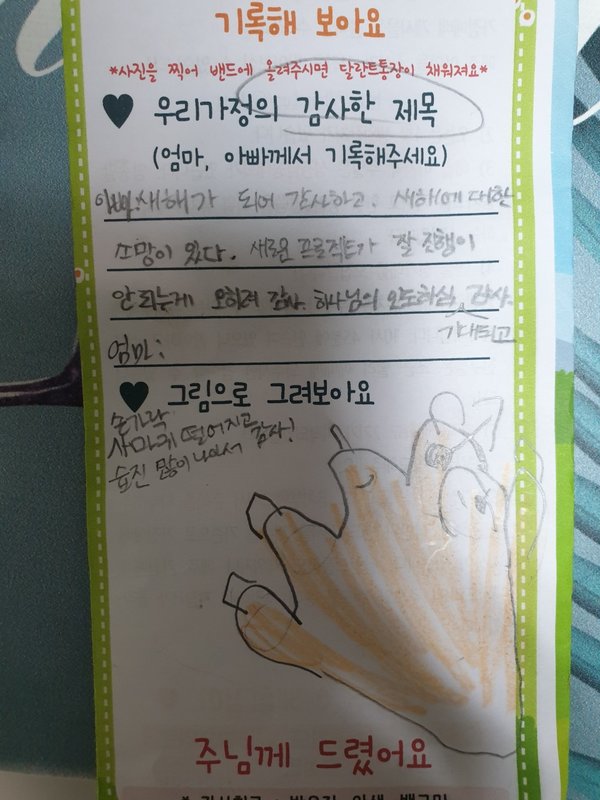 기록해 보아요
*사진을 찍어 밴드에 올려주시면 달란트통장이 채워져요*
우리가정의 감사한 제목
(엄마, 아빠께서 기록해주세요)
아빠: 새해가 되어 감사하고. 새해에 대한
소망이 있다. 새로운 프로젝트가 잘 진행이
안되는게 오히려 감사. 하나님의 인도하심 감사.
기대되고
엄마:
그림으로 그려보아요
손가락
사마귀 떨어지고 감사!
습진 많이 나아서
주님께 드렸어요